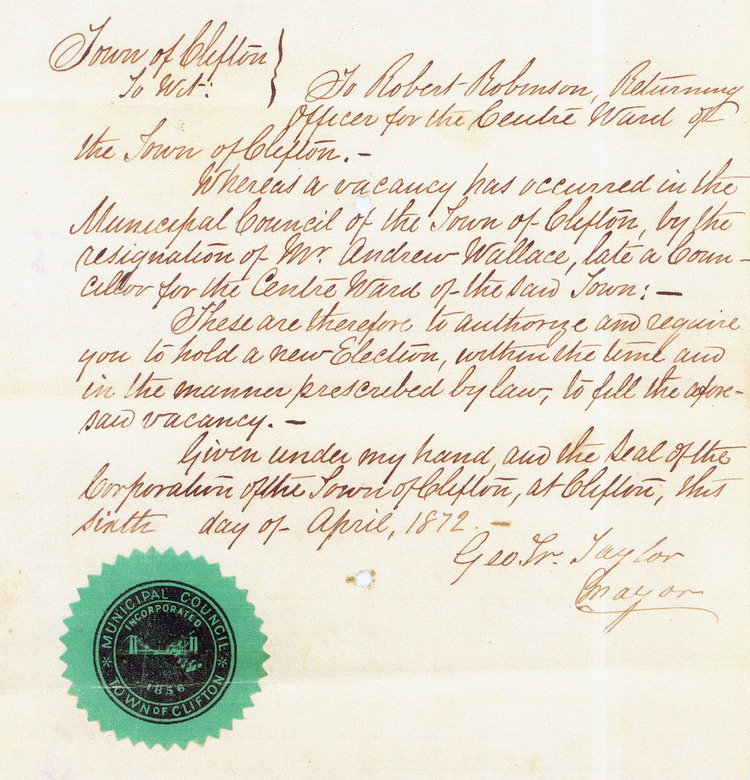 Town of Clifton
To Wit:
To Robert Robinson, Returning
Officer for the Centre Ward of
the Town of Clifton. —
Whereas a vacancy has occurred in the
Municipal Council of the Town of Clifton, by the
resignation of Mr. Andrew Wallace, late a Coun-
cillor for the Centre Ward of the said Town: —
These are therefore to authorize and require
you to hold a new Election, within the time and
in the manner prescribed by law, to fill the afore-
said vacancy. —
Given under my hand, and the Seal of the
Corporation of the Town of Clifton, at Clifton, this
sixth day of April, 1872. —
Geo. W. Taylor
Mayor
MUNICIPAL COUNCIL
INCORPORATED
1856
TOWN OF CLIFTON